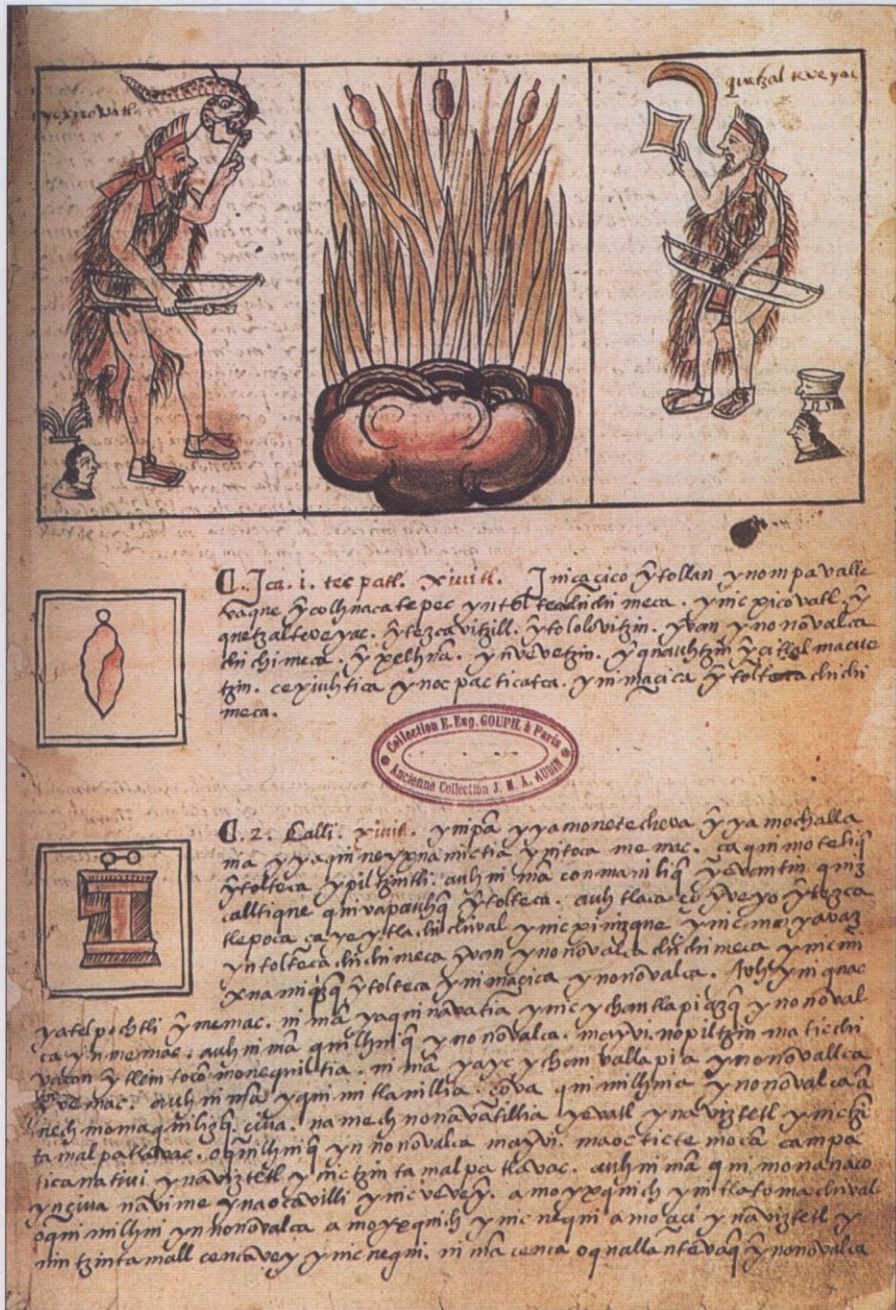 quetzal teveyac
C. Ica. i. tecpatl. xiuitl. Inicacico ỹtollan ynompa valle
vaque ỹ colhuacatepec yn toltecachichimeca. ynicxicovatl. ỹ
quetzalteveyac. ỹtezcavitzill. ỹtololovitzin. yvan ynonovalca
chichimeca. ỹ xelhuã. ynvevetzin. ỹquauhtzin ỹcitlal macue
tzin. cexiuhtica ynoc pacticatca. ynimacica ỹ tolteca chichi
meca.
Collection E. Eug. GOUPIL à Paris
Ancienne Collection J. M. A. AUBIN
C. 2. Calli. xiuitl. ynipã yyamonetecheva ỹ ya mochalla
nia yyaquineyxnamictia ỹnitoca vemac. ca quimoteliq̃
ỹtolteca ỹpiltzintli. auh ni mã conmaniliq̃ yevantin quiz
calltique quivapauhq̃ ỹtolteca. auh tlaca ço ỹveyo ỹtezca
tlepoca ça yeytla chichival ynicxinizque ynic moyavaz
yn tolteca chichimeca ỹvan ynonovalca chichimeca ynicmi
xnamiq̃zq̃ ỹtolteca ynimacica ynonovalca. Auh yniquac
yatelpochtli ỹvemac. ni mã yaquinavatia ynicychantlapiazq̃ ynonoval
ca ynvemac. auh ni mã quilhuiq̃ ynonovalca. mayvi. nopiltzin ma ticchi
vacan ỹtlein toco monequiltia. ni mã yayc ychan vallapia ynonovallca
ỹvemac. auh ni mã yquimitlanillia. çiva quimilhuia ynonovalca ã
nechmomaquilizq̃. civa. namechnonavatillia yevatl ynaviztetl ynictzi
tamalpatlavac. oquilhuiq̃ yn nonovalca mayvi. maoc tictemocã campa
ticanativi ynaviztetl ynictzintamalpatlavac. auh ni mã quimonanaco
ynçiva navime ynaocavilli ynicvevey. amo yxquich ynitlatomachival
oquimilhui ynnonovalca amo yxquich ynicnequi amo açi ynaviztetl y
nin tzintamall cencavey ynicnequi. ni mã cenca oquallantevaq̃ ỹnonovalca